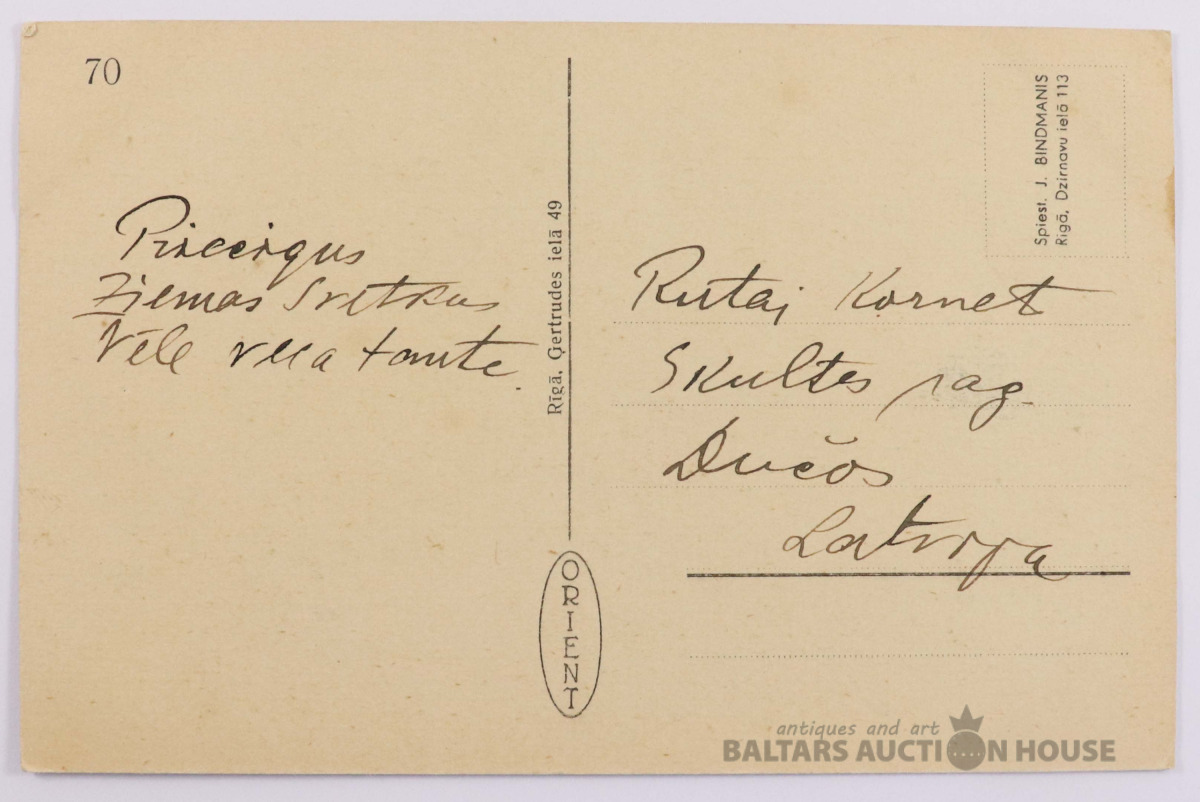 70
Priecīgus
Ziemas Svetkus
Vēle veca tante.
Rīgā, Ģertrudes ielā 49
ORIENT
Spiest. J. BINDMANIS
Rīgā, Dzirnavu ielā 113
Rutai Kornet
Skultes pag.
Dučos
Latvija
antiques and art
BALTARS AUCTION HOUSE